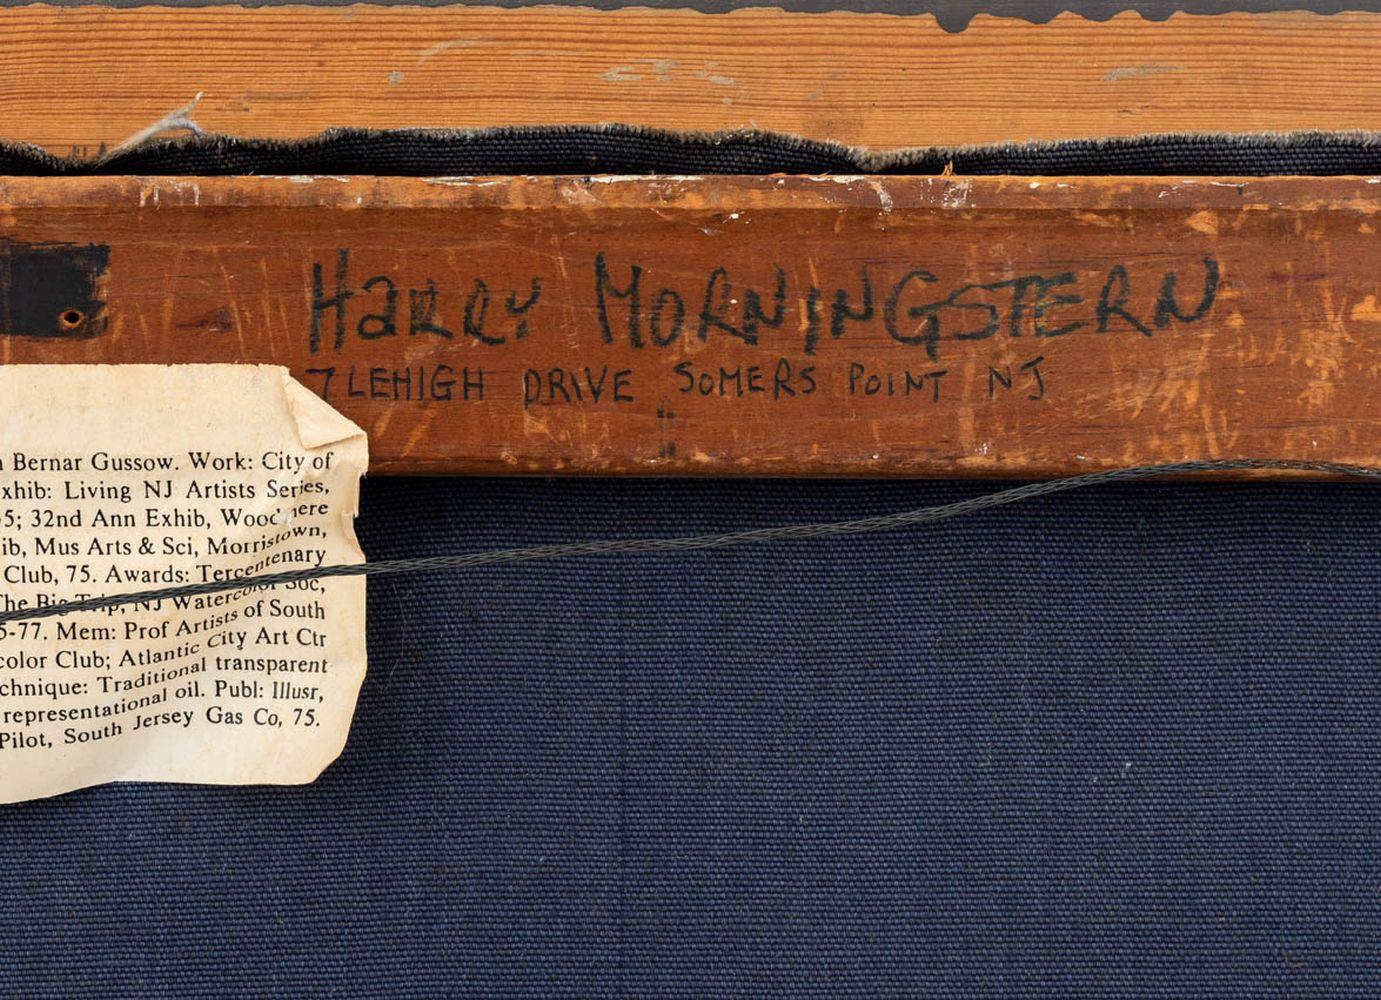 Harry Morningstern
7 LEHIGH DRIVE SOMERS POINT NJ
Bernar Gussow. Work: City of
xhib: Living NJ Artists Series,
5; 32nd Ann Exhib, Woodmere
ib, Mus Arts & Sci, Morristown,
Club, 75. Awards: Tercentenary
The Big Trip, NJ Watercolor Soc,
5-77. Mem: Prof Artists of South
color Club; Atlantic City Art Ctr
chnique: Traditional transparent
representational oil. Publ: Illusr,
Pilot, South Jersey Gas Co, 75.